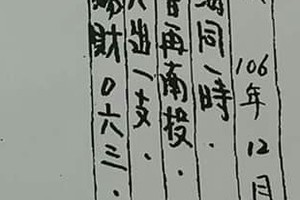 106年12月
同一時.
再南投.
出一支.
財0六三.